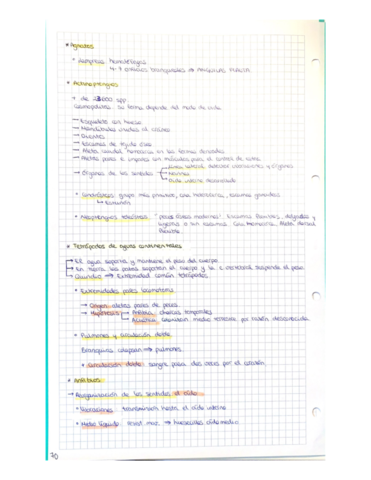 • Agnatos
• Lampreas
4-7 espacios branquiales →
• Actinopterigios
+ de 23600 spp
cosmopolitas. Su forma depende del modo de vida
→ Esqueleto con hueso
→ Mandíbulas unidas al cráneo
→ Dientes
→ Escamas de tejido óseo
→ Aleta caudal homocerca en las formas derivadas
→ Aletas pares e impares con músculos para el control de estas
→ Órganos de los sentidos
Línea lateral: detectar corrientes y
Narinas
Oído interno desarrollado
• grupo más primitivo, cola heterocerca, escamas ganoideas
• Neopterigios teleósteos: "peces óseos modernos". Escamas flexibles, delgadas y
ligeras o sin escamas. Cola homocerca. Aleta dorsal
flexible.
• Tetrápodos de aguas continentales
→ El agua soporta y mantiene el peso del cuerpo
→ En tierra las patas soportan el cuerpo y la c. vertebral suspende el peso
→ Quiridio → Extremidad común tetrápodos
• Extremidades pares locomotoras
→ Origen: aletas pares de peces
→ Hipótesis
charcas temporales
medio terrestre por razón desconocida
• Pulmones y circulación doble
Branquias → pulmones
• Circulación doble: sangre pasa dos veces por el corazón
• Anfibios
→ Reorganización de los sentidos: el oído
• Vibraciones: transmisión hasta el oído interno
• Medio líquido: → huesecillos oído medio
20